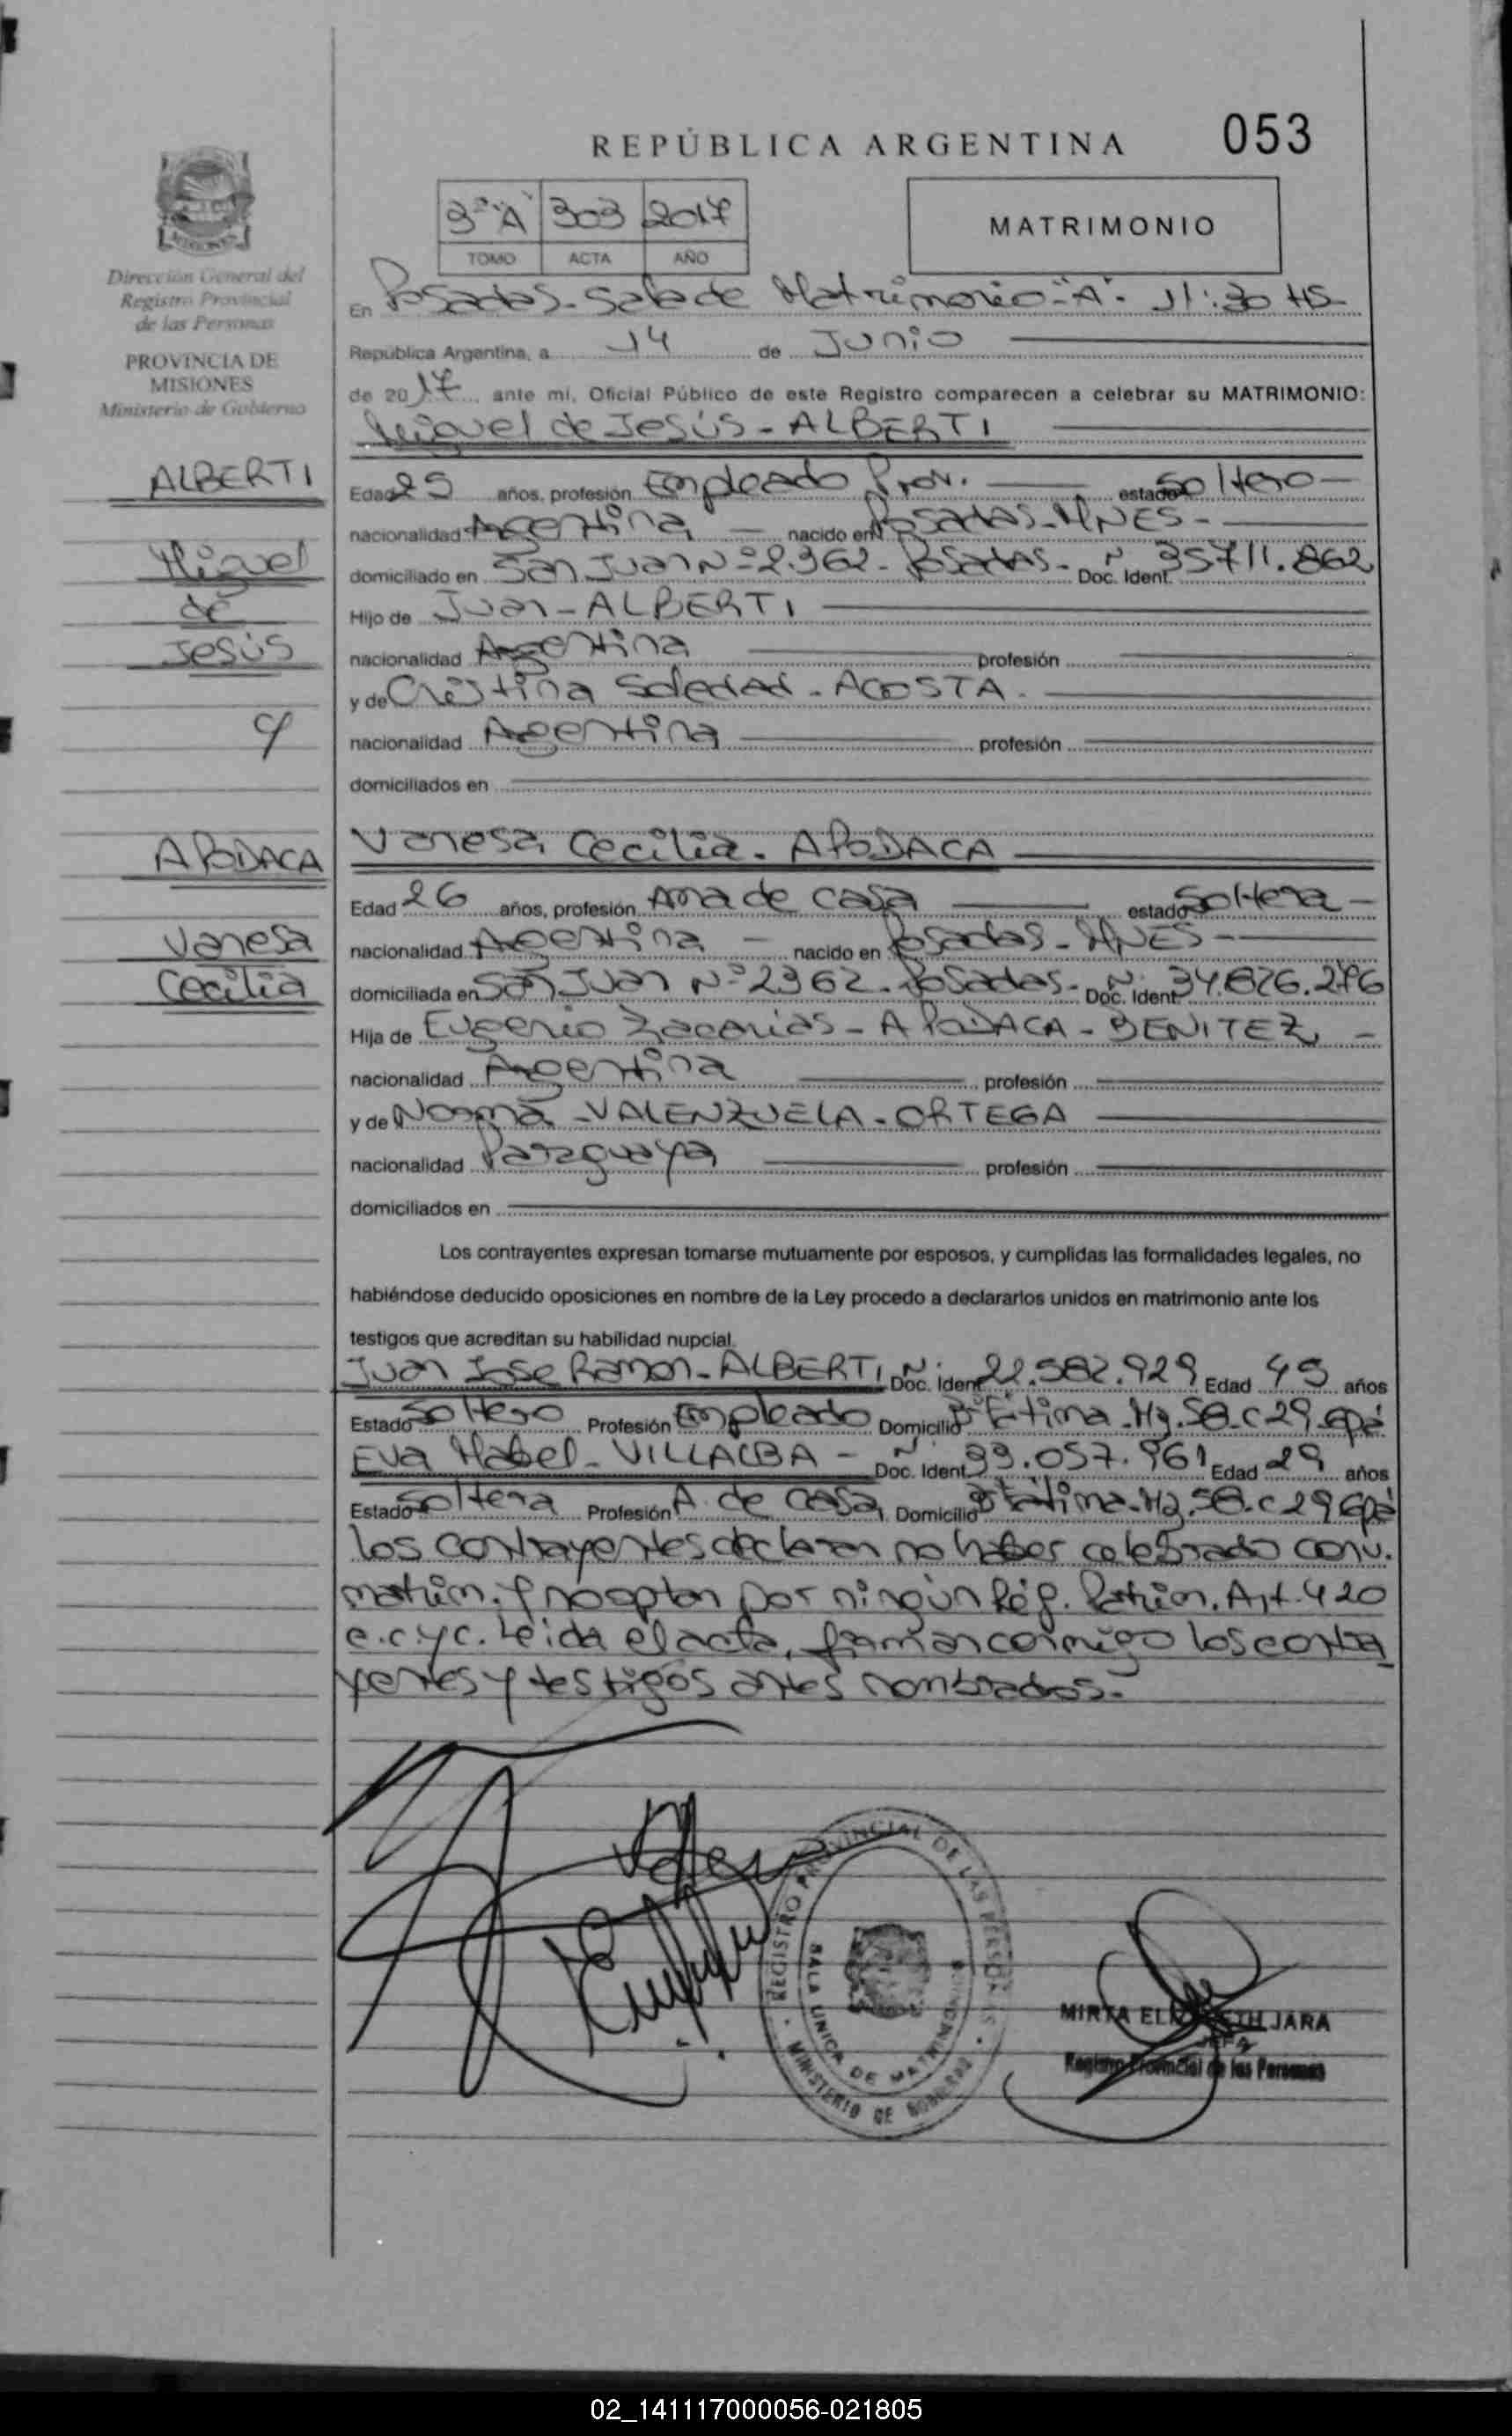 REPÚBLICA ARGENTINA 053
3º "A" 303 2017
TOMO ACTA AÑO
MATRIMONIO
MISIONES
Dirección General del
Registro Provincial
de las Personas
PROVINCIA DE
MISIONES
Ministerio de Gobierno
En Posadas - Sala de Matrimonio - "A" - 11:30 HS -
República Argentina, a 14 de Junio
de 2017 ante mi, Oficial Público de este Registro comparecen a celebrar su MATRIMONIO:
Miguel de Jesús - ALBERTI
ALBERTI
Miguel
de
Jesús
y
APODACA
Vanesa
Cecilia
Edad 25 años, profesión Empleado Prov. estado Soltero -
nacionalidad Argentina - nacido en Posadas - MNES -
domiciliado en San Juan Nº 2.362 - Posadas - Doc. Ident. Nº 35711.862
Hijo de Juan - ALBERTI
nacionalidad Argentina profesión
y de Cristina Soledad - ACOSTA -
nacionalidad Argentina profesión
domiciliados en
Vanesa Cecilia - APODACA
Edad 26 años, profesión Ama de casa estado Soltera -
nacionalidad Argentina - nacido en Posadas - MNES -
domiciliada en San Juan Nº 2362 - Posadas - Doc. Ident. Nº 34.826.276
Hija de Eugenio Zacarias - APODACA - BENITEZ -
nacionalidad Argentina profesión
y de Norma - VALENZUELA - ORTEGA
nacionalidad Paraguaya profesión
domiciliados en
Los contrayentes expresan tomarse mutuamente por esposos, y cumplidas las formalidades legales, no
habiéndose deducido oposiciones en nombre de la Ley procedo a declararlos unidos en matrimonio ante los
testigos que acreditan su habilidad nupcial.
Juan Jose Ramon - ALBERTI Doc. Ident. Nº 22.582.929 Edad 45 años
Estado Soltero Profesión Empleado Domicilio Bº Fátima - Mz. 58 - C 29 Gpá
Eva Mabel - VILLALBA - Doc. Ident. Nº 33.057.961 Edad 29 años
Estado Soltera Profesión A. de casa Domicilio Bº Fátima - Mz. 58 - C 29 Gpá
Los contrayentes declaran no haber celebrado conv.
matrim. y no optan por ningún Rég. Patrim. Art. 420
c.c.y c. Leida el acta, firman conmigo los contra
yentes y testigos antes nombrados. -
REGISTRO PROVINCIAL DE LAS PERSONAS
SALA UNICA DE MATRIMONIO
MINISTERIO DE GOBIERNO
MIRTA ELIZABETH JARA
JEFA
Registro Provincial de las Personas
02_141117000056-021805